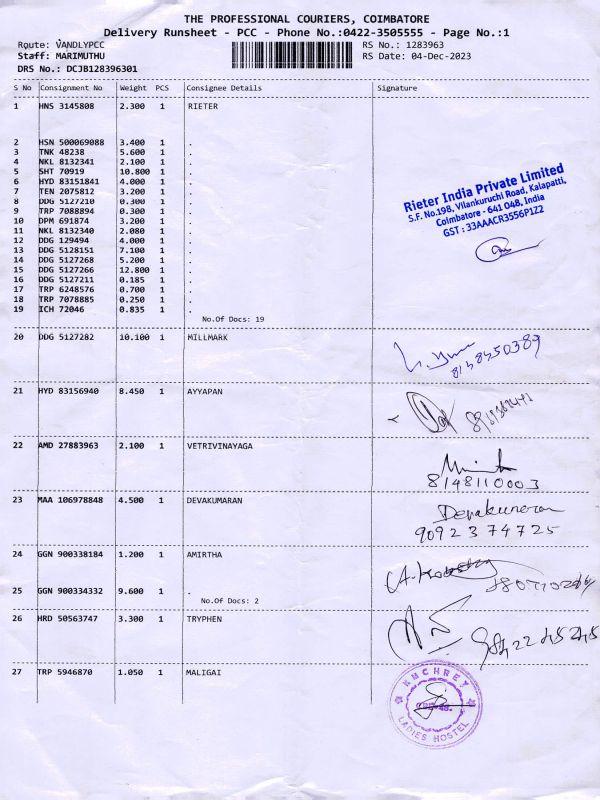 THE PROFESSIONAL COURIERS, COIMBATORE
Delivery Runsheet - PCC - Phone No.:0422-3505555 - Page No.:1
Route: VANDLYPCC
RS No.: 1283963
Staff: MARIMUTHU
RS Date: 04-Dec-2023
DRS No.: DCJB128396301
S No Consignment No Weight PCS Consignee Details Signature
1 HNS 3145808 2.300 1 RIETER
2 HSN 500069088 3.400 1 .
3 TNK 48238 5.600 1 .
4 NKL 8132341 2.100 1 .
5 SHT 70919 10.800 1 .
6 HYD 83151841 4.000 1 .
7 TEN 2075812 3.200 1 .
8 DDG 5127210 0.300 1 .
9 TRP 7088894 0.300 1 .
10 DPM 691874 3.200 1 .
11 NKL 8132340 2.080 1 .
12 DDG 129494 4.000 1 .
13 DDG 5128151 7.100 1 .
14 DDG 5127268 5.200 1 .
15 DDG 5127266 12.800 1 .
16 DDG 5127211 0.185 1 .
17 TRP 6248576 0.700 1 .
18 TRP 7078885 0.250 1 .
19 ICH 72046 0.835 1 .
No.Of Docs: 19
Rieter India Private Limited
S.F. No.198, Vilankuruchi Road, Kalapatti,
Coimbatore - 641 048, India
GST : 33AAACR3556P1Z2
20 DDG 5127282 10.100 1 MILLMARK
8148450389
21 HYD 83156940 8.450 1 AYYAPAN
22 AMD 27883963 2.100 1 VETRIVINAYAGA
8148110003
23 MAA 106978848 4.500 1 DEVAKUMARAN
Devakumaran
9092374725
24 GGN 900338184 1.200 1 AMIRTHA
25 GGN 900334332 9.600 1 .
No.Of Docs: 2
26 HRD 50563747 3.300 1 TRYPHEN
27 TRP 5946870 1.050 1 MALIGAI
LADIES HOSTEL